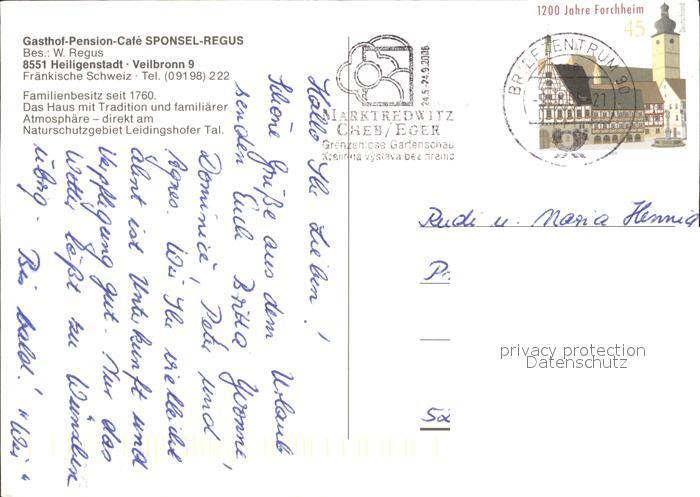 Gasthof-Pension-Café SPONSEL-REGUS
Bes.: W. Regus
8551 Heiligenstadt · Veilbronn 9
Fränkische Schweiz · Tel. (09198) 222
Familienbesitz seit 1760.
Das Haus mit Tradition und familiärer
Atmosphäre – direkt am
Naturschutzgebiet Leidingshofer Tal.
Hallo Ihr Lieben!
Schöne Grüße aus dem Urlaub
senden Euch Britta, Yvonne,
Dominice, Peter und
Agnes. Wie Ihr vielleicht
ahnt ist Unterkunft und
Verpflegung gut. Nur das
Wetter läßt zu Wünschen
übrig. Bis bald! "Wir"
24.5-24.9.2006
MARKTREDWITZ
CHEB/EGER
Grenzenlose Gartenschau
Krajinná výstava bez hranic
1200 Jahre Forchheim
45
Deutschland
BRIEFZENTRUM 90
21
Rudi u. Maria Hennig
52
privacy protection
Datenschutz